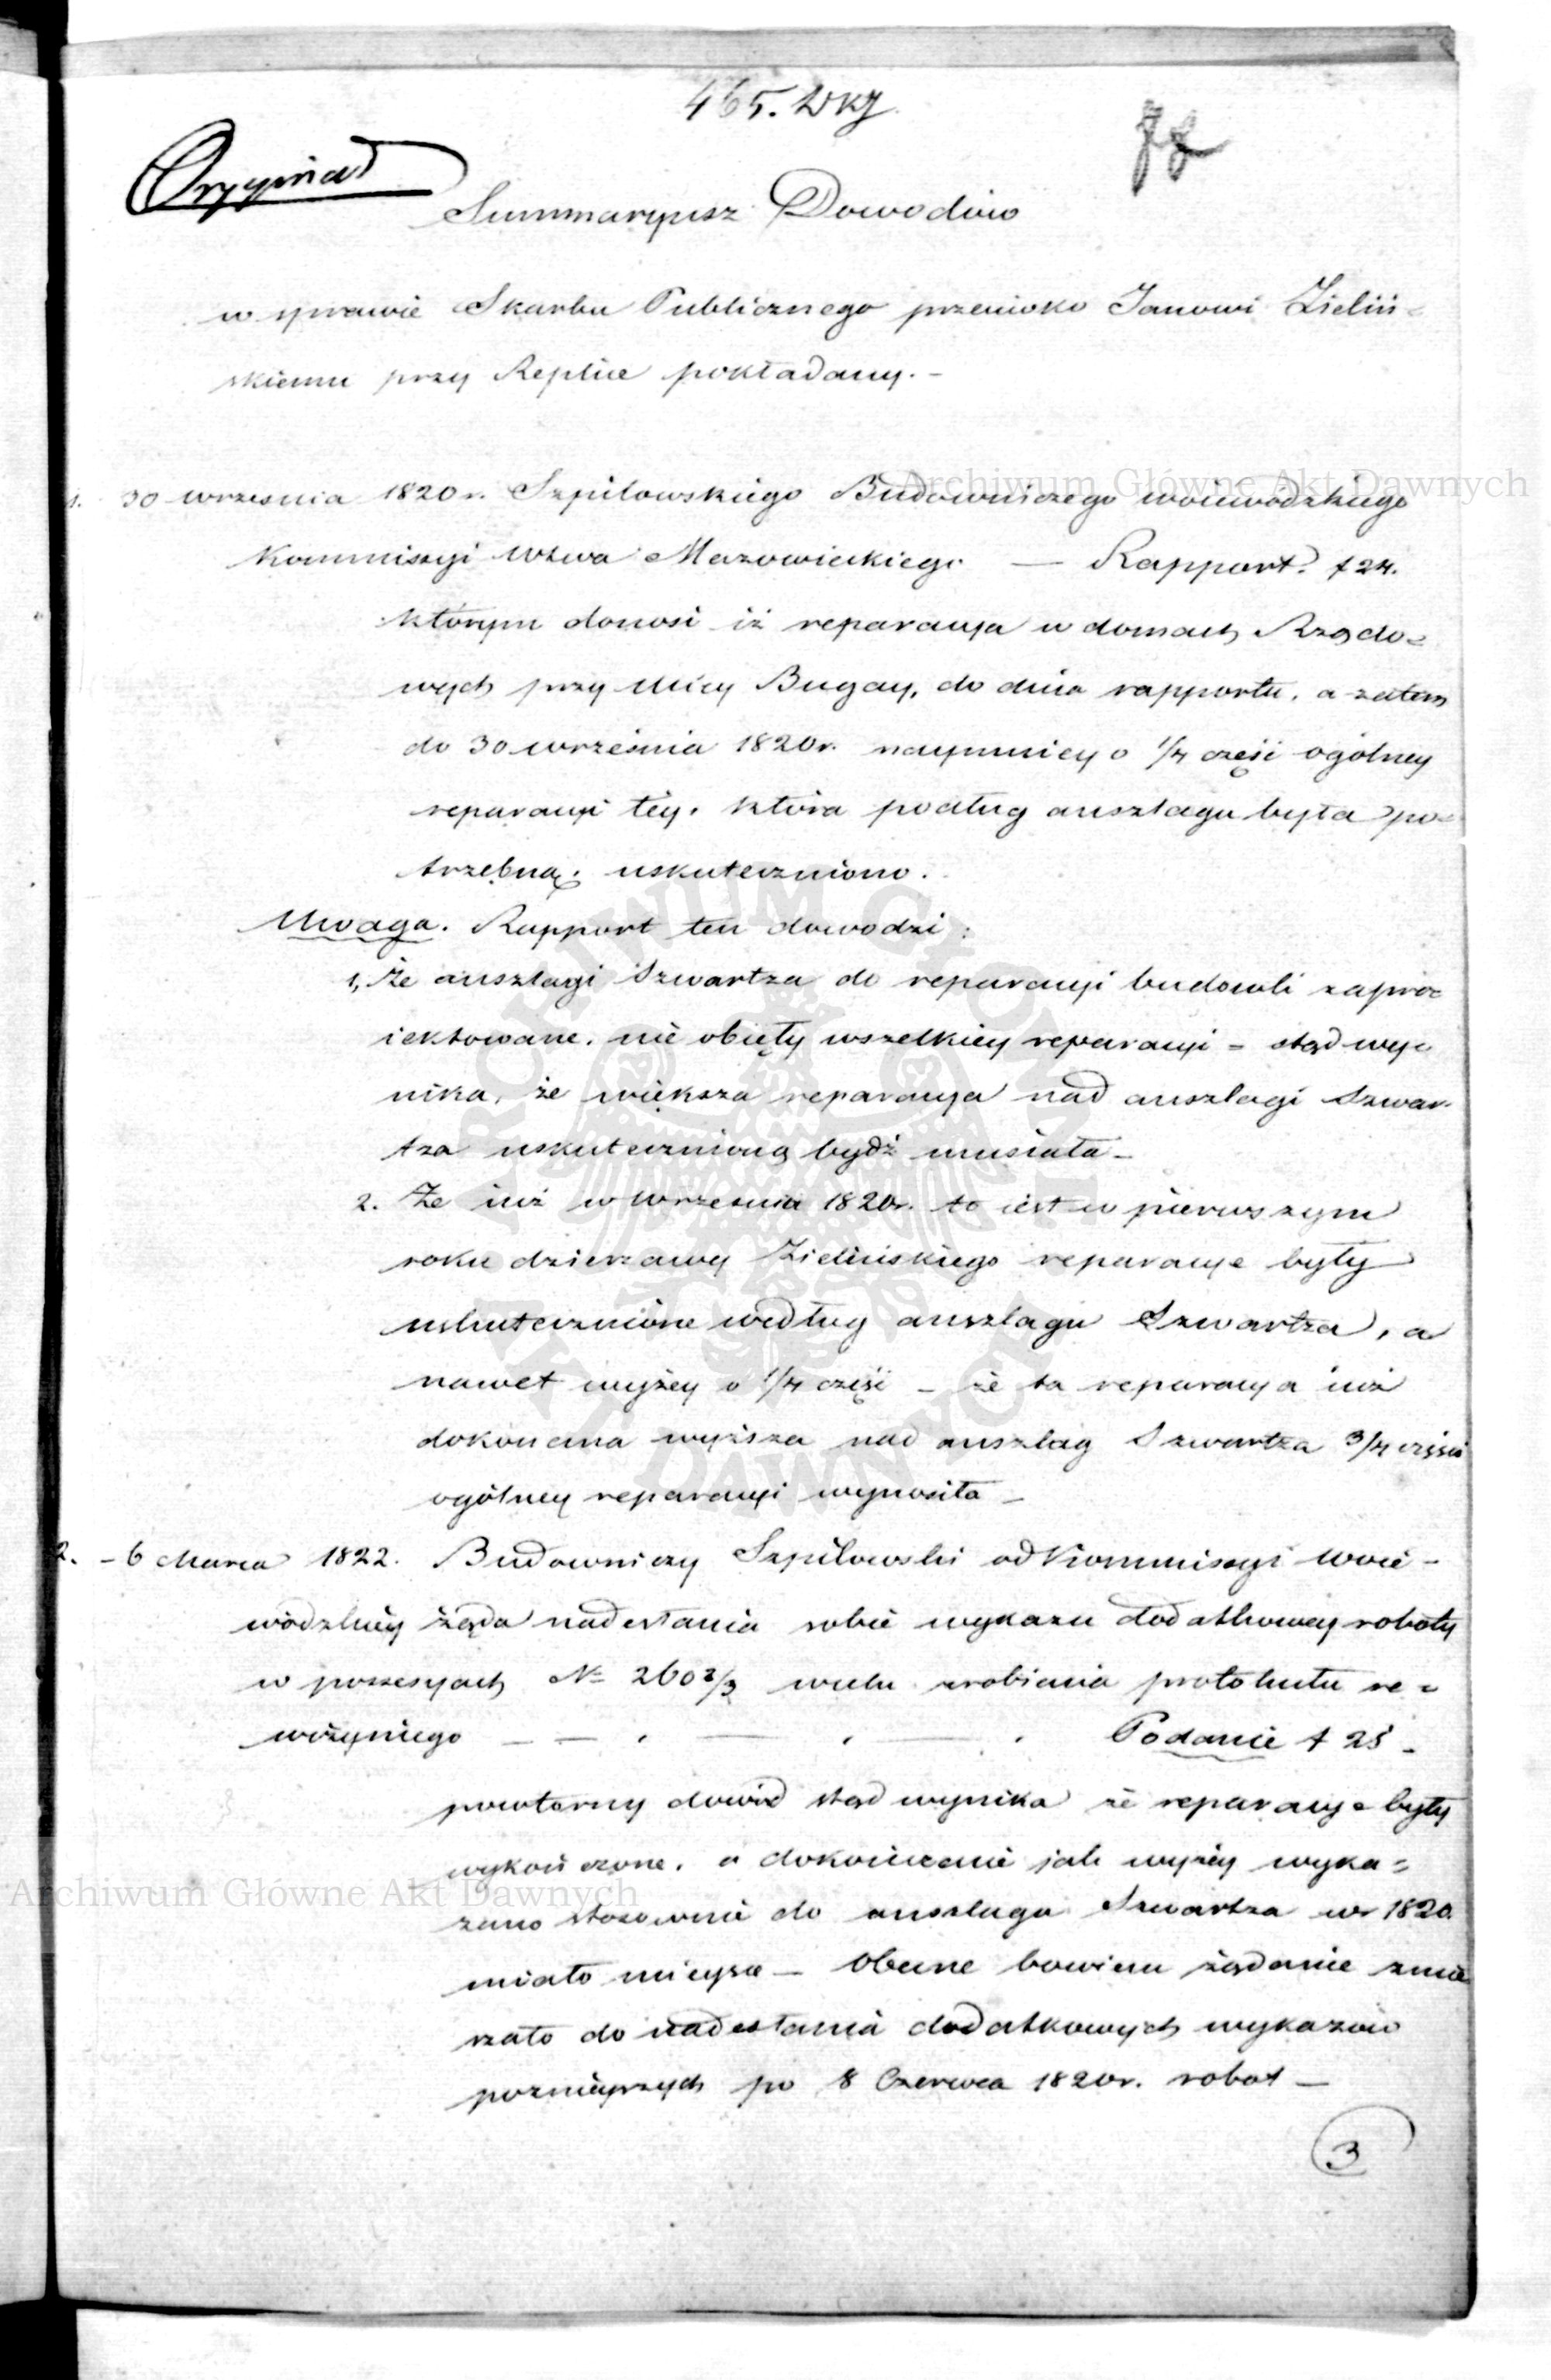 465. WKG
Oryginał
Summaryusz Dowodów
w sprawie Skarbu Publicznego przeciwko Janowi Zieliń=
skiemu przy Replice pokładany. -
1. 30 września 1820 r. Szpilowskiego Budowniczego woiewódzkiego
Kommissyi Wztwa Mazowieckiego — Rapport. f 24.
którym donosi iż reparacya w domach Rządo=
wych przy Ulicy Bugay, do dnia rapportu, a zatem
do 30 września 1820 r. naymniey o 1/4 częśi ogólney
reparacyi téy, która podług anszlagu była po=
trzebną, uskuteczniono.
Uwaga. Rapport ten dowodzi:
1, Że anszlagi Szwartza do reparacyi budowli zapro=
iektowane, nie obięły wszelkiey reparacyi = stąd wy=
nika, że większa reparacya nad anszlagi Szwar=
tza uskutecznioną bydź musiała _
2. Że iuż w Wrześniu 1820 r. to iest w pierwszym
roku dzierżawy Zielińskiego reparacye były
uskutecznione według anszlagu Szwartza, a
nawet wyżey o 1/4 częśi _ że ta reparacya iuż
dokonana wyższa nad anszlag Szwartza 3/4 części
ogólney reparacyi wynosiła _
2. - 6 Marca 1822. Budowniczy Szpilowski od Kommissyi Woie -
wódzkiey żąda nadesłania sobie wykazu dodatkowey roboty
w possesyach N= 260 2/3 celu zrobienia protokułu re=
wizyinego — — — Podanie f 25 _
powtorny dowód stąd wynika że reparacye były
wykończone, a dokończenie jak wyżey wyka=
zano stosownie do anszlagu Szwartza w r 1820
miało mieysce _ Obecne bowiem żądanie zmie
rzało do nadesłania dodatkowych wykazów
poznieyszych po 8 Czerwca 1820 r. robot _
3
Archiwum Główne Akt Dawnych
Archiwum Główne Akt Dawnych
ARCHIWUM GŁÓWNE AKT DAWNYCH